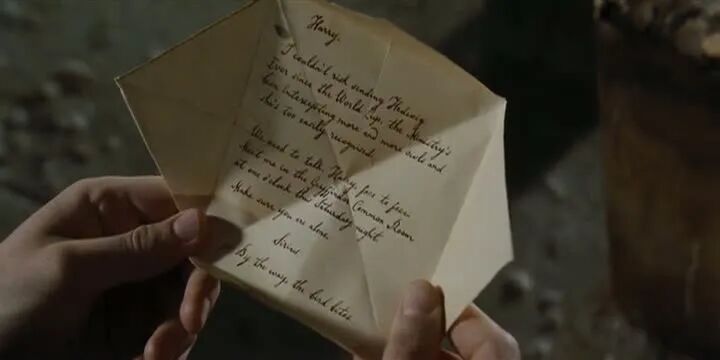 Harry,
I couldn't risk sending Hedwig
Ever since the World Cup, the Ministry's
been intercepting more and more owls and
she's too easily recognised.
We need to talk, Harry, face to face.
Meet me in the Gryffindor Common Room
at one o'clock this Saturday night
Make sure you are alone
Sirius
By the way, the bird bites